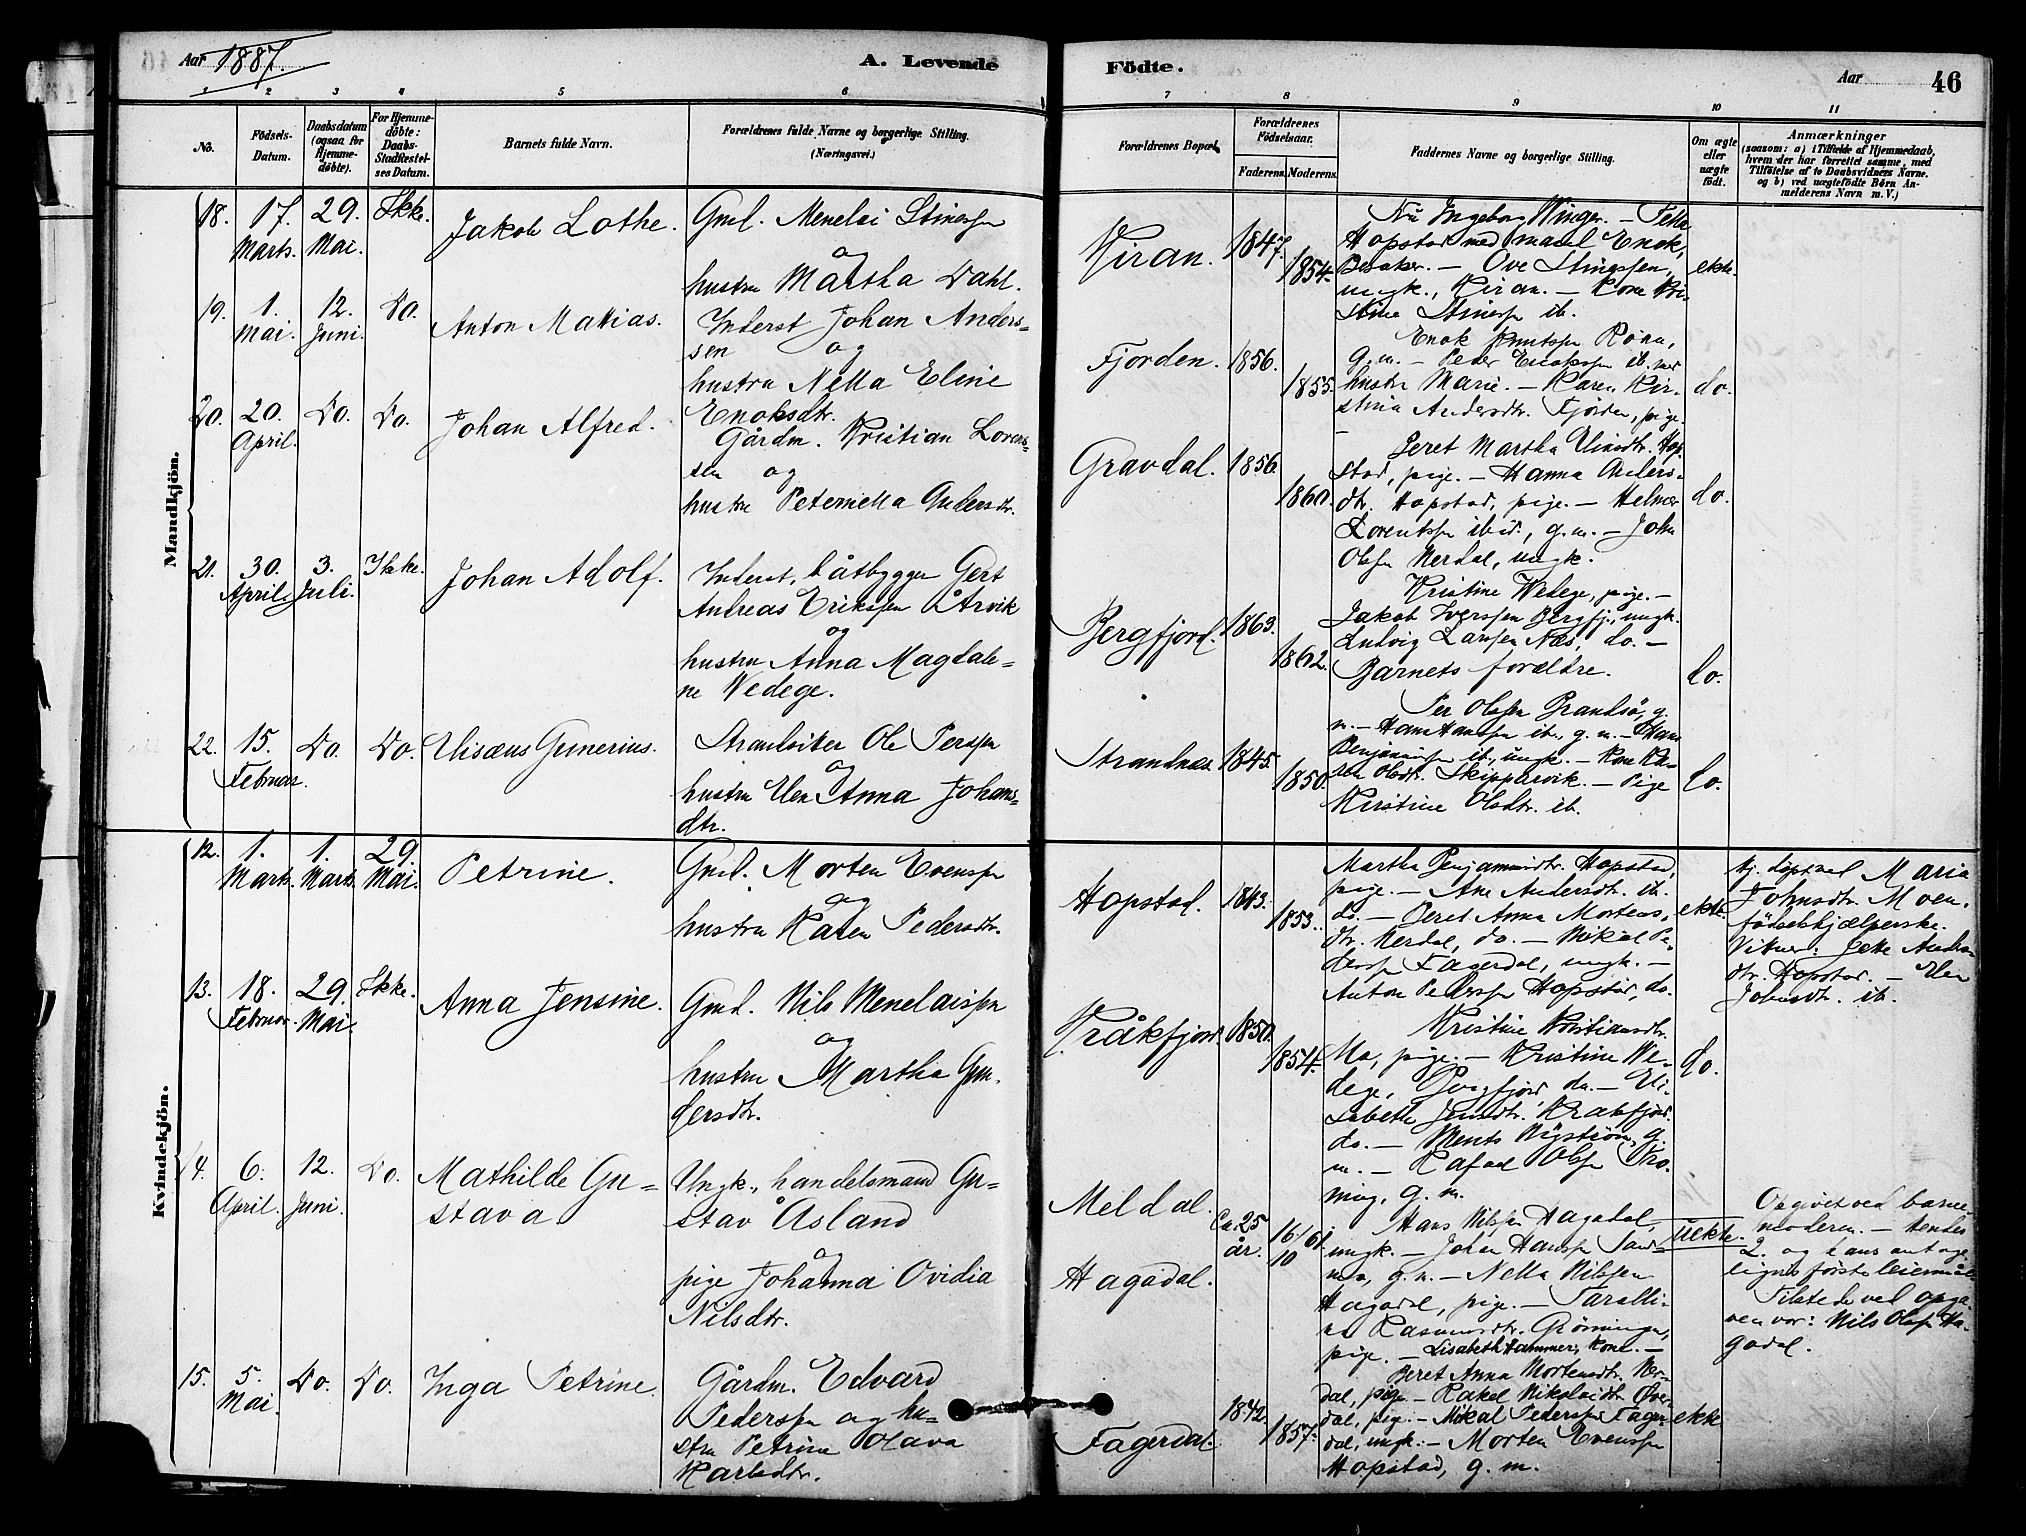 Aar 1887.
A. Levende
Födte.
Aar
46
1 2 3 4 5 6 7 8 9 10 11
No.
Födsels-
Datum.
Daabsdatum
(ogsaa for
Hjemme-
döbte).
For Hjemme-
döbte:
Daabs-
Stadfæstel-
ses Datum.
Barnets fulde Navn.
Forældrenes fulde Navne og borgerlige Stilling.
(Næringsvei.)
Forældrenes Bopæl.
Forældrenes
Födselsaar.
Faderens. Moderens.
Faddernes Navne og borgerlige Stilling.
Om ægte
eller
uægte
født.
Anmærkninger
(saasom: a) i Tilfælde af Hjemmedaab,
hvem der har forrettet samme, med
Tilföielse af to Daabsvidners Navne.
og b) ved uægtefödte Börn An-
melderens Navn m. V.)
Mandkjön.
18. 17. Marts. 29. Mai. Ikke. Jakob Lothe.
Gmd. Menelai Stinessen
og
hustru Martha Dahl.
Kiran. 1847. 1854.
Ove Stinessen,
ungk., Kiran. — Kone Kri-
stine Stinessen ib.
ekte.
19. 1. Mai. 12. Juni. Do. Anton Matias.
Inderst Johan Anders-
sen og
hustru Nella Eline
Enoksdtr.
Fjorden. 1856. 1855.
Enok Knutssen Rönn,
g. m. — Peder Enokssen ib. med
hustru Marie. — Karen Kir-
stina Andersdtr. Fjorden, pige.
do.
20. 20. April. Do. Do. Johan Alfred.
Gårdm. Kristian Lorents-
sen og
hustru Peternella Andersdtr.
Gravdal. 1856. 1860.
Beret Martha Elinsdtr. Hop-
stad, pige. — Hanna Anders-
dtr. Hopstad, pige. — Helmer
Lorentssen ibid., g. m. — John
Olsen Nerdal, ungk.
do.
21. 30. April. 3. Juli. Ikke. Johan Adolf.
Inderst, båtbygger Gert
Andreas Erikssen Årvik
og
hustru Anna Magdale-
ne Wedege.
Bergfjord. 1863. 1862.
Kristine Wedege, pige. —
Jakob Iverssen Bergfj., ungk.
Ludvig Larssen Næs, do. —
Barnets forældre.
do.
22. 15. Februar. Do. Do. Elisæus Gunerius.
Strandsitter Ole Perssen
og
hustru Elen Anna Johans-
dtr.
Strandnes. 1845. 1850.
Per Olssen Brandsö, g.
m. — Hans Hanssen ib., g. m. — Hans
Benjaminssen ib., ungk. — Kone Ka-
ren Olsdtr. Skippervik. — Pige
Kirstine Olsdtr. ib.
do.
Kvindekjön.
12. 1. Marts. 1. Marts. 29. Mai. Petrine.
Gmd. Morten Evenssen
og
hustru Karen Pedersdtr.
Hopstad. 1843. 1853.
Martha Benjaminsdtr. Hopstad,
pige. — Ane Andersdtr. ib.
do. — Beret Anna Mortens-
dtr. Nerdal, do. — Mikal Pe-
derssen Fagerdal, ungk. —
Anton Pederssen Hopstad, do.
ekte.
Hj. döpt ved Maria
Johnsdtr. Moen,
födselshjælperske.
Vitner: Jette Anders-
dtr. Hopstad. — Elen
Johnsdtr. ib.
13. 18. Februar. 29. Mai. Ikke. Anna Jensine.
Gmd. Nils Menelaissen
og
hustru Martha Gun-
dersdtr.
Kråkfjord. 1850. 1854.
Kristine Kristiansdtr.
Mo, pige. — Kristine We-
dege, Bergfjord, do. — Eli-
sabeth Jensdtr. Kråkfjord.
do. — Ments Nyström, g.
m. — Rafael Olsen Kro-
ning, g. m.
do.
14. 6. April. 12. Juni. Do. Mathilde Gu-
stava
Ungk., handelsmand Gu-
stav Åsland
og
pige Johanna Ovidia
Nilsdtr.
Meldal.
Hagadal.
Ca. 25 år. 16/10 61.
Hans Nilssen Hagadal,
ungk. — Johan Hanssen Sand-
mo, g. m. — Nella Nilssen
Hagadal, pige. — Taralli-
na Rasmusdtr. Grönningen,
pige. — Lisabeth Hammer, kone. —
uekte.
Opgivet ved barne-
moderen. — hendes
2. og hans antage-
ligvis förste leiermål.
Tilstede ved opga-
ven var: Nils Olsen Ha-
gadal.
15. 5. Mai. Do. Do. Inga Petrine.
Gårdm. Edvard
Pederssen og hu-
stru Petrine Olava
Karlsdtr.
Fagerdal. 1842. 1857.
Beret Anna Mortensdtr. Ner-
dal, pige — Rakel Nikolaidtr. Over-
dal, pige. — Mikal Pederssen Fager-
dal, ungk. — Morten Evenssen
Hopstad, g. m.
ekte